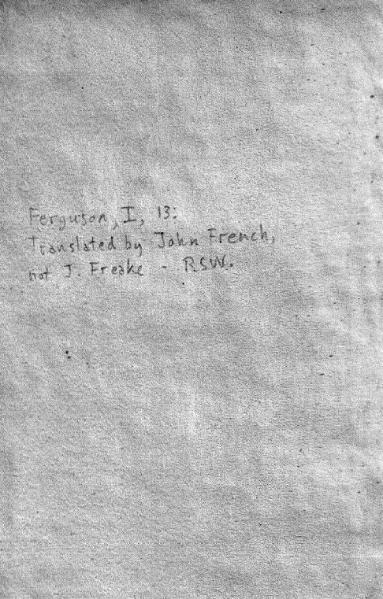 Ferguson, I, 13:
Translated by John French,
not J. Freake - RSW.